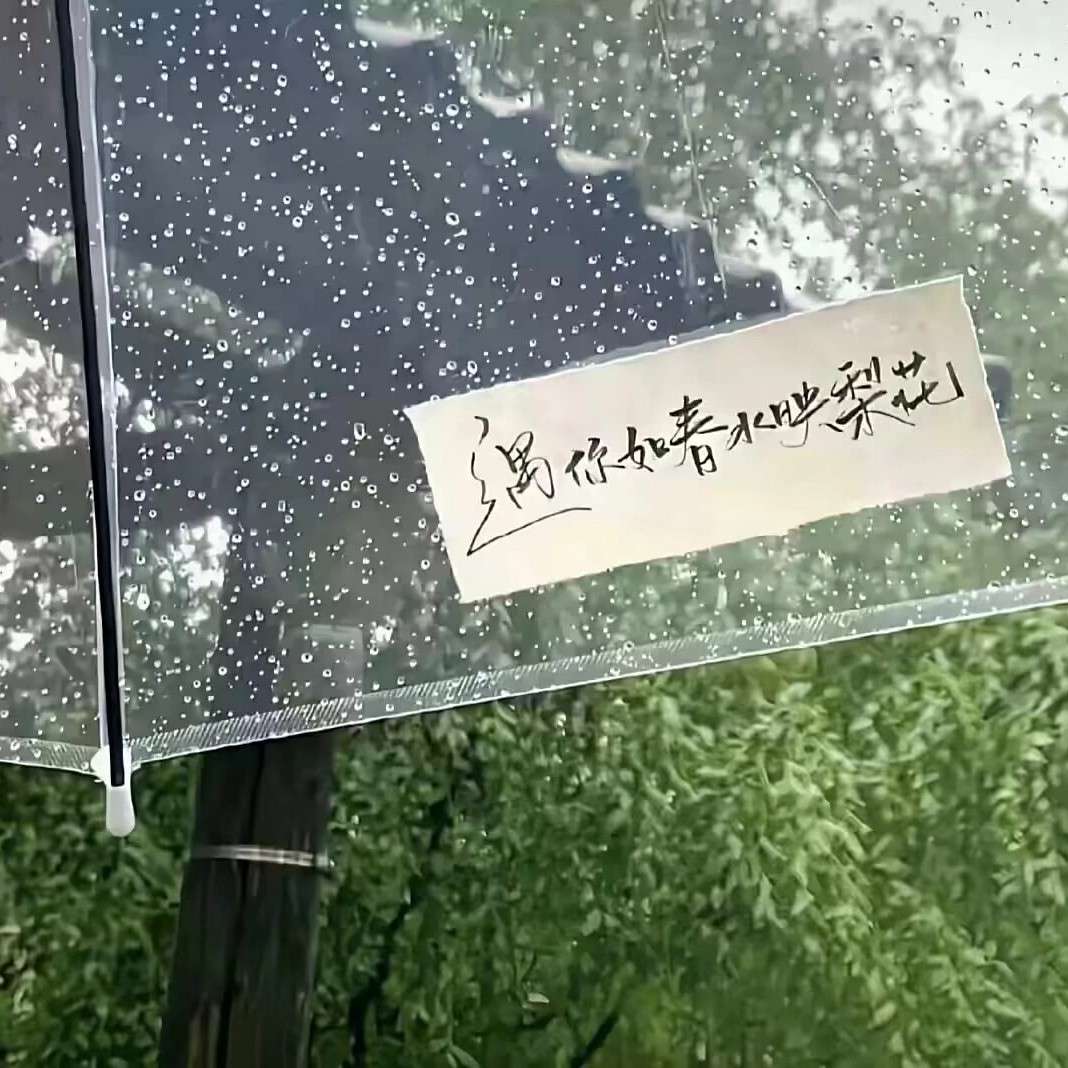 遇你如春水映梨花